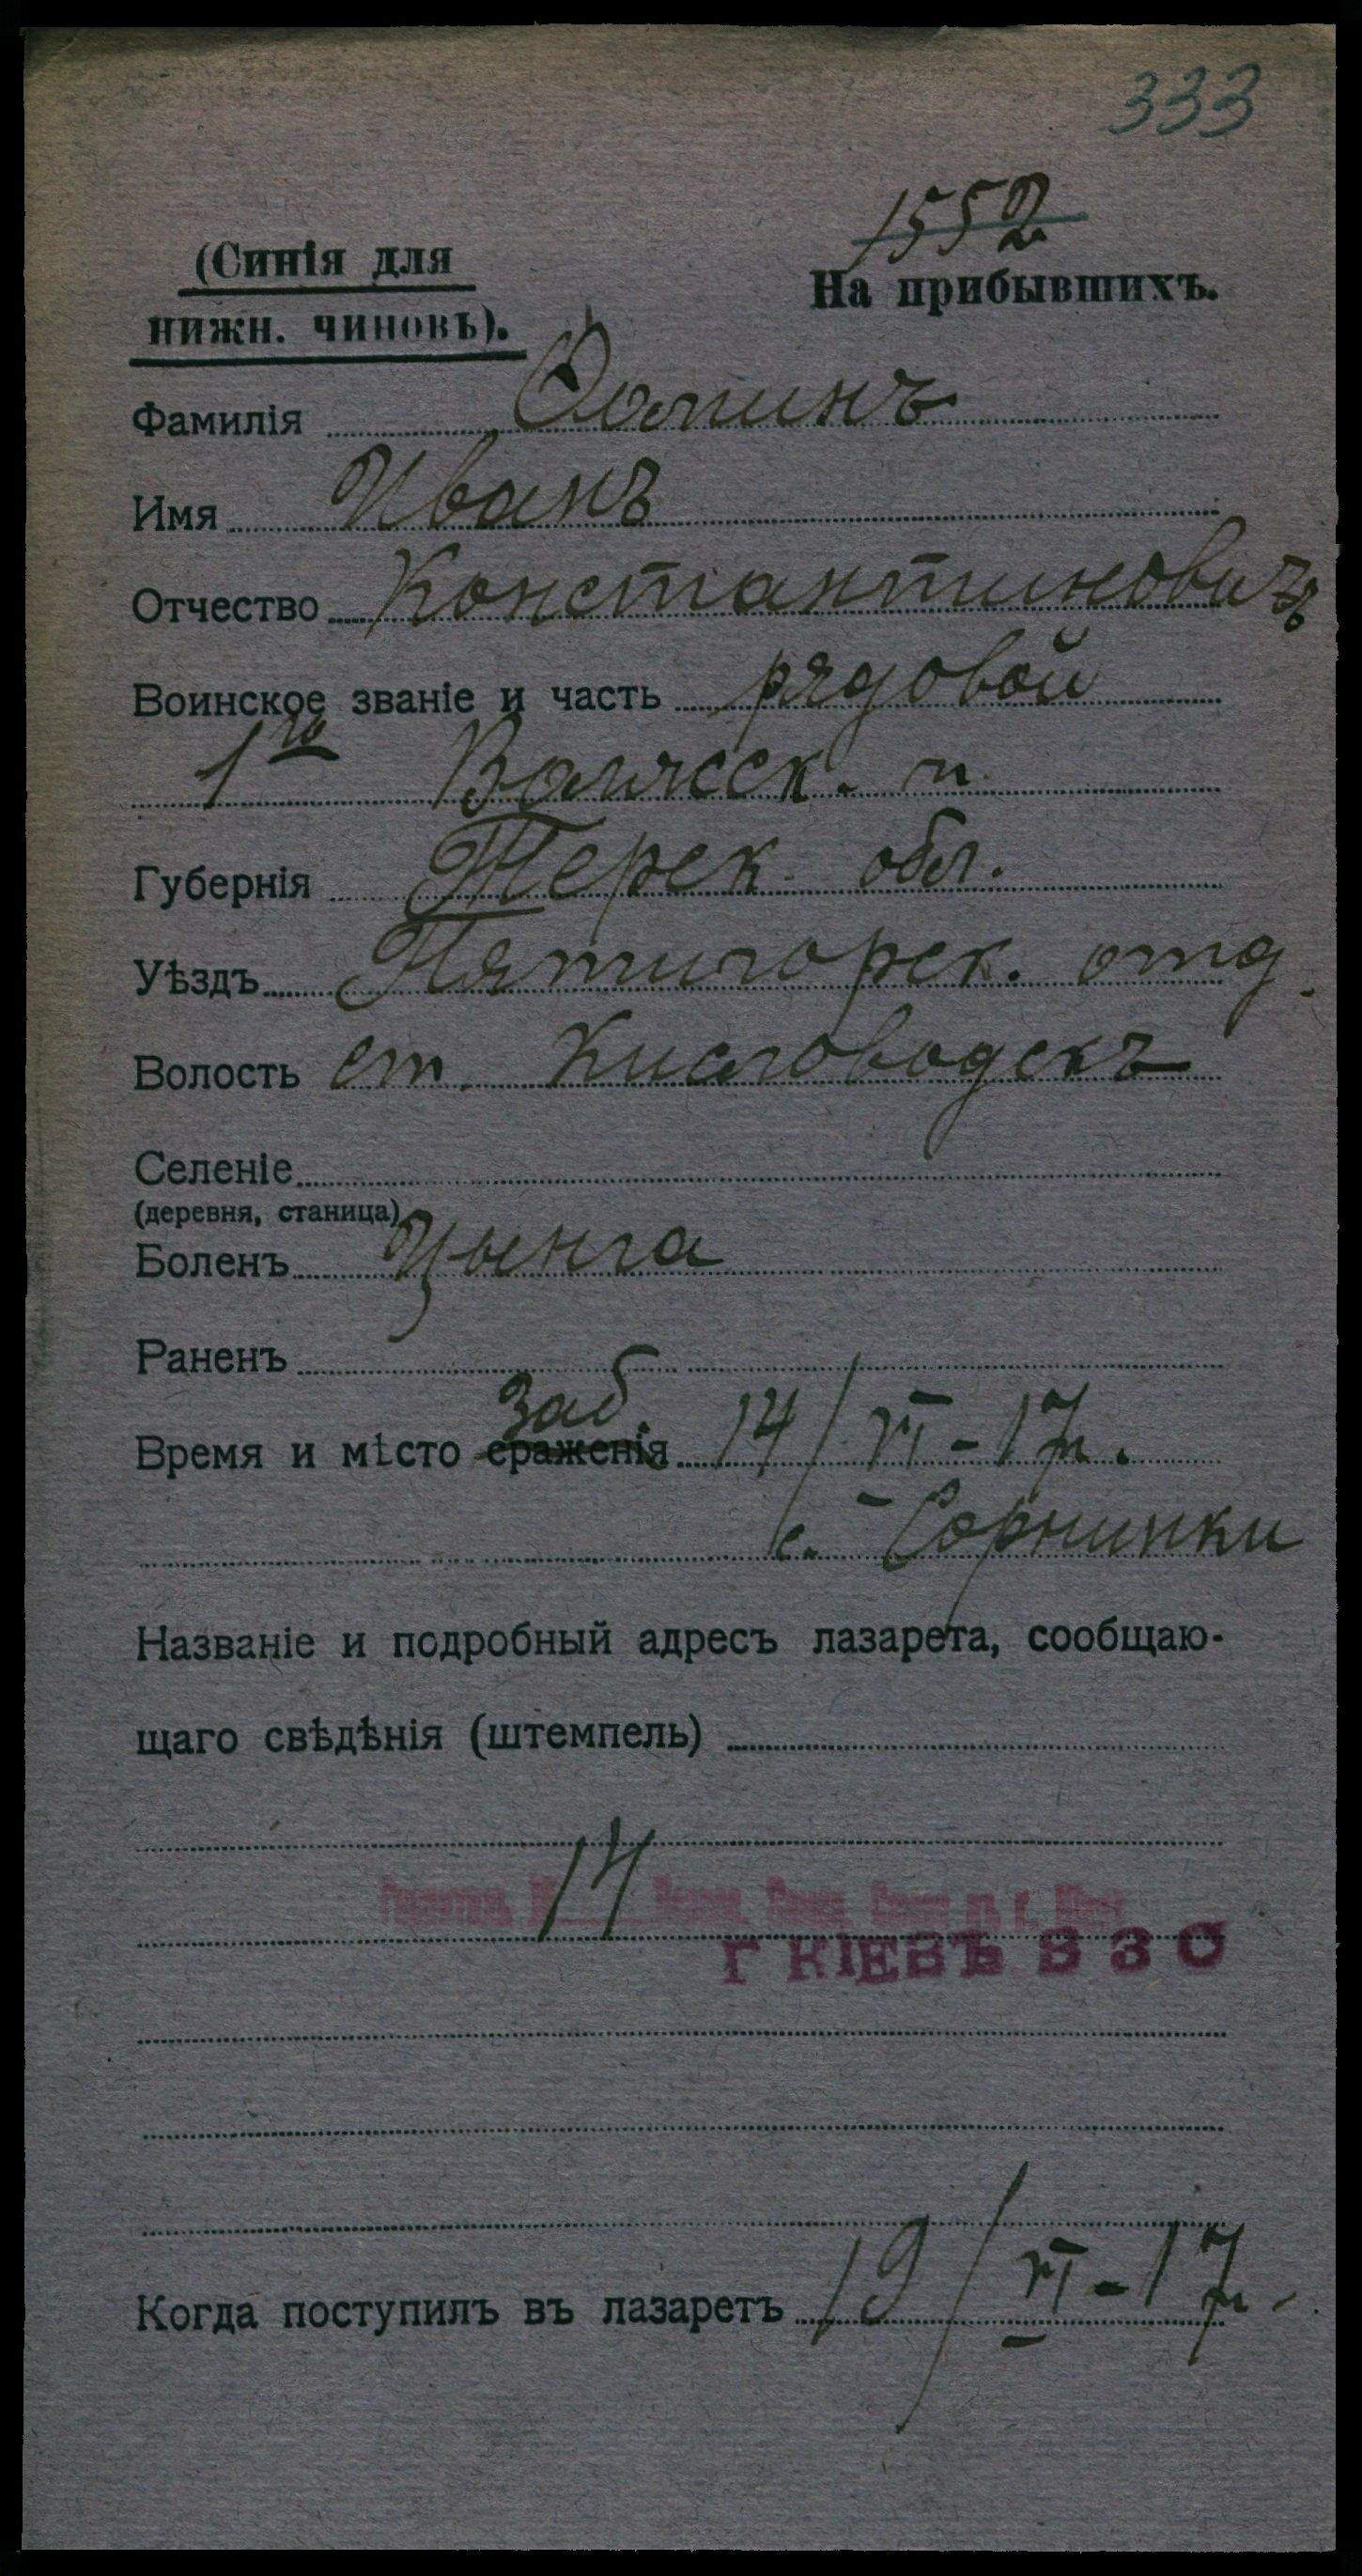 333
1552
(Синія для
На прибывшихъ.
нижн. чиновъ).
Фамилія Фоминъ
Имя Иванъ
Отчество Константиновичъ
Воинское званіе и часть рядовой
1го Волжсск. п.
Губернія Терек. обл.
Уѣздъ Пятигорск. отд.
Волость ст. Кисловодскъ
Селеніе
(деревня, станица)
Боленъ Цынга
Раненъ
заб.
Время и місто сраженія 14/VI-17г.
с.
Названіе и подробный адресъ лазарета, сообщаю-
щаго свѣдѣнія (штемпель)
14
Г КІЕВЪ В З О
Когда поступилъ въ лазаретъ 19/VI-17г.